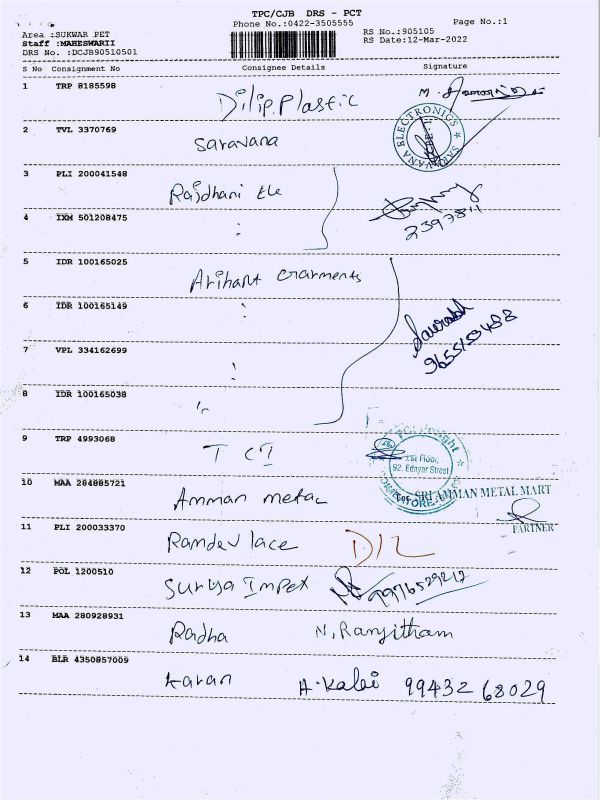 TPC/CJB DRS - PCT
Phone No.:0422-3505555
Page No.:1
Area :SUKWAR PET
Staff :MAHESWARII
DRS No. :DCJB90510501
RS No.:905105
RS Date:12-Mar-2022
S No Consignment No Consignee Details Signature
1 TRP 8185598 Dilip.Plastic
2 TVL 3370769 Saravana
SARAVANA ELECTRONICS
3 PLI 200041548 Rajdhani Ele
4 IXM 501208475 :
5 IDR 100165025 Arihant Garments
6 IDR 100165149 :
7 VPL 334162699 :
Saurabh
8 IDR 100165038
9 TRP 4993068 T C I
1st Floor,
92, Edayar Street
10 MAA 284885721 Amman metal
SRI AMMAN METAL MART
PARTNER
11 PLI 200033370 Ramdev lace
12 POL 1200510 Suriya Impex 9976529212
13 MAA 280928931 Radha N. Ranjitham
14 BLR 4350857009 Karan A. Kalai 99432 68029